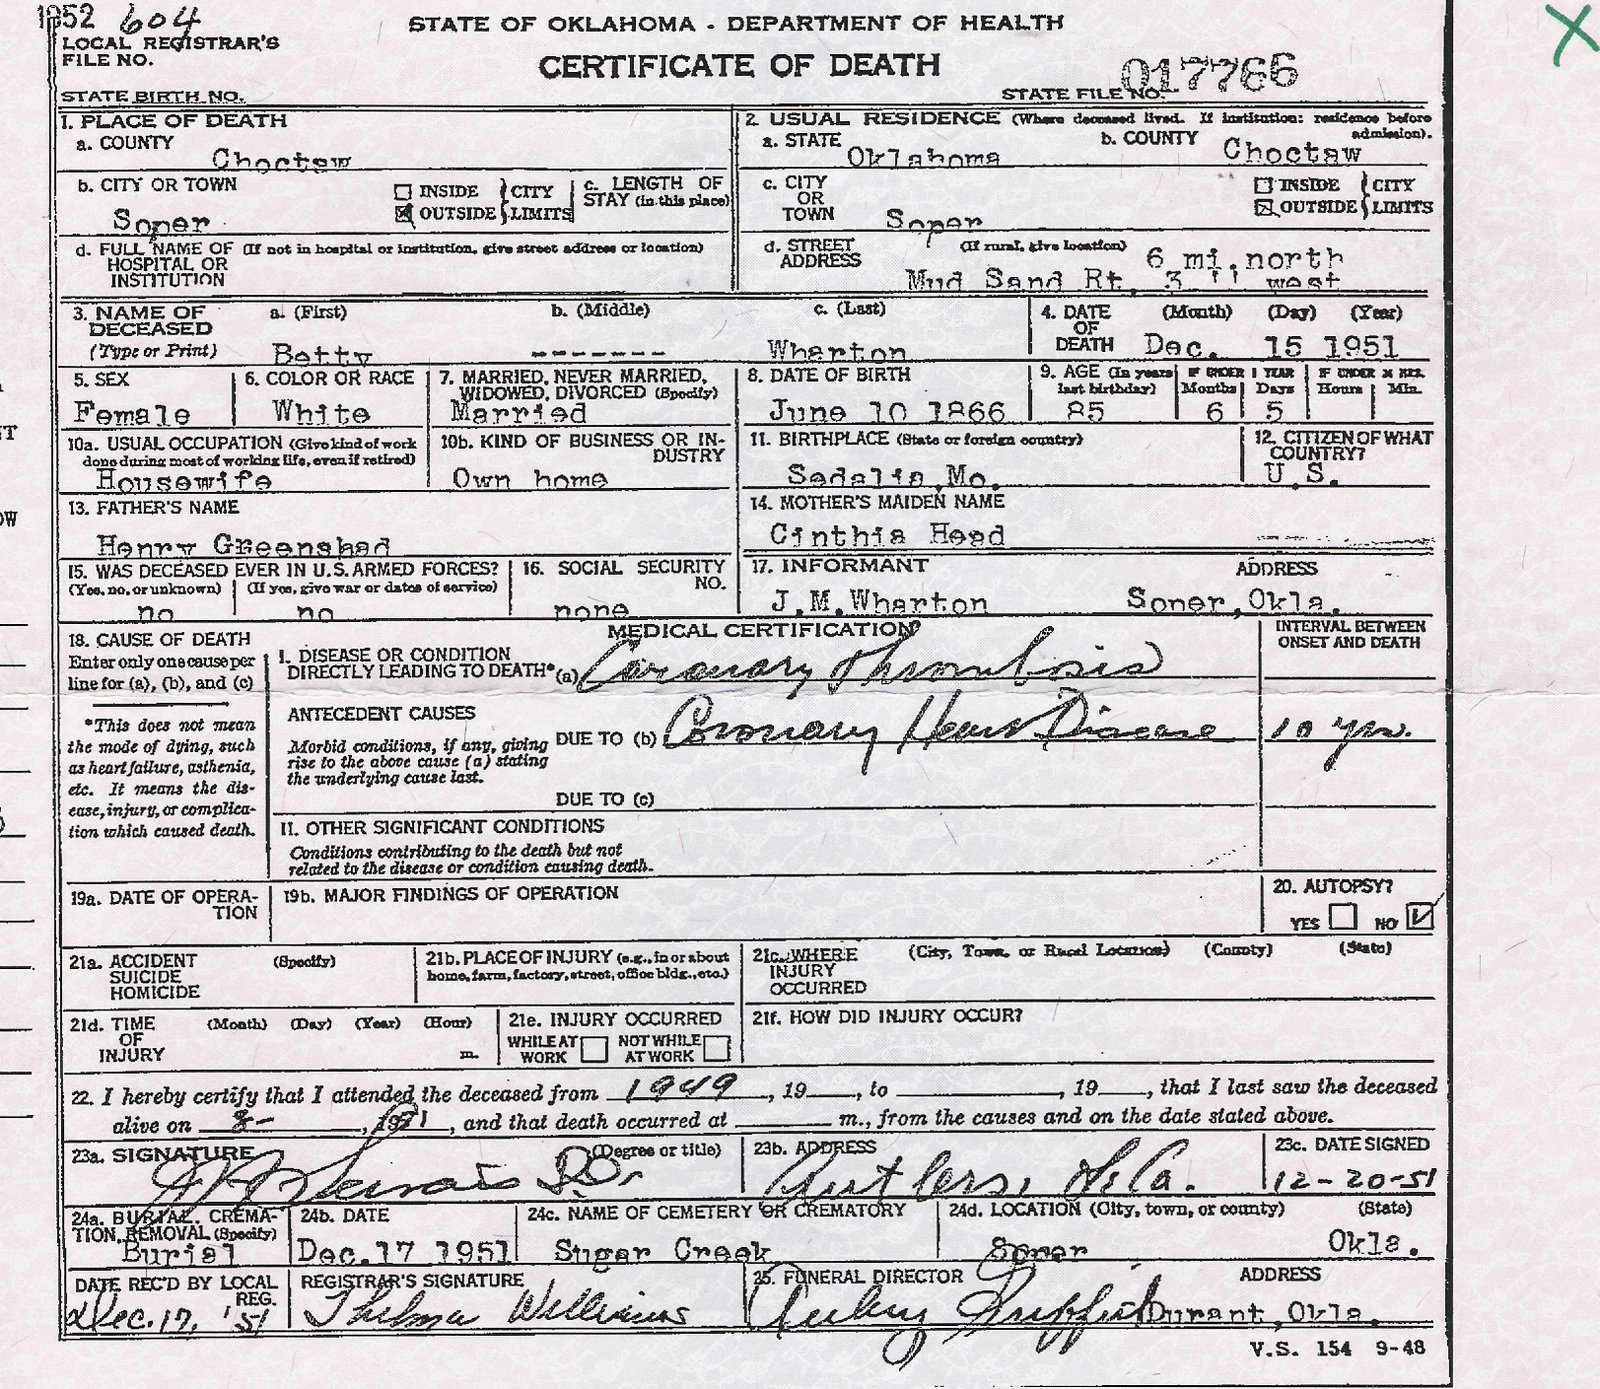 1952 604
LOCAL REGISTRAR'S
FILE NO.
STATE OF OKLAHOMA - DEPARTMENT OF HEALTH
CERTIFICATE OF DEATH
STATE BIRTH NO.
STATE FILE NO. 017766
1. PLACE OF DEATH
a. COUNTY
Choctaw
2. USUAL RESIDENCE (Where deceased lived. If institution: residence before admission).
a. STATE Oklahoma
b. COUNTY Choctaw
b. CITY OR TOWN
Soper
INSIDE
OUTSIDE
CITY
LIMITS
c. LENGTH OF
STAY (in this place)
c. CITY
OR
TOWN Soper
INSIDE
OUTSIDE
CITY
LIMITS
d. FULL NAME OF (If not in hospital or institution, give street address or location)
HOSPITAL OR
INSTITUTION
d. STREET (If rural, give location)
ADDRESS
6 mi. north
Mud Sand Rt. 3 " west
3. NAME OF
DECEASED
(Type or Print)
a. (First)
Betty
b. (Middle)
-------
c. (Last)
Wharton
4. DATE
OF
DEATH
(Month) (Day) (Year)
Dec. 15 1951
5. SEX
Female
6. COLOR OR RACE
White
7. MARRIED, NEVER MARRIED,
WIDOWED, DIVORCED (Specify)
Married
8. DATE OF BIRTH
June 10 1866
9. AGE (In years
last birthday)
85
IF UNDER 1 YEAR
Months Days
6 5
IF UNDER 24 HRS.
Hours Min.
10a. USUAL OCCUPATION (Give kind of work
done during most of working life, even if retired)
Housewife
10b. KIND OF BUSINESS OR IN-
DUSTRY
Own home
11. BIRTHPLACE (State or foreign country)
Sedalia, Mo.
12. CITIZEN OF WHAT
COUNTRY?
U.S.
13. FATHER'S NAME
Henry Greenshad
14. MOTHER'S MAIDEN NAME
Cinthia Head
15. WAS DECEASED EVER IN U.S. ARMED FORCES?
(Yes, no, or unknown) (If yes, give war or dates of service)
no no
16. SOCIAL SECURITY
NO.
none
17. INFORMANT ADDRESS
J.M.Wharton Soper, Okla.
MEDICAL CERTIFICATION
INTERVAL BETWEEN
ONSET AND DEATH
18. CAUSE OF DEATH
Enter only one cause per
line for (a), (b), and (c)
*This does not mean
the mode of dying, such
as heart failure, asthenia,
etc. It means the dis-
ease, injury, or complica-
tion which caused death.
I. DISEASE OR CONDITION
DIRECTLY LEADING TO DEATH* (a) Coronary Thrombosis
ANTECEDENT CAUSES
Morbid conditions, if any, giving
rise to the above cause (a) stating
the underlying cause last.
DUE TO (b) Coronary Heart Disease 10 yrs.
DUE TO (c)
II. OTHER SIGNIFICANT CONDITIONS
Conditions contributing to the death but not
related to the disease or condition causing death.
19a. DATE OF OPERA-
TION
19b. MAJOR FINDINGS OF OPERATION
20. AUTOPSY?
YES NO
21a. ACCIDENT (Specify)
SUICIDE
HOMICIDE
21b. PLACE OF INJURY (e.g., in or about
home, farm, factory, street, office bldg., etc.)
21c. WHERE (City, Town, or Rural Location) (County) (State)
INJURY
OCCURRED
21d. TIME (Month) (Day) (Year) (Hour)
OF
INJURY m.
21e. INJURY OCCURRED
WHILE AT
WORK
NOT WHILE
AT WORK
21f. HOW DID INJURY OCCUR?
22. I hereby certify that I attended the deceased from 1949, 19___, to ___, 19___, that I last saw the deceased
alive on 8-, 1951, and that death occurred at ___ m., from the causes and on the date stated above.
23a. SIGNATURE (Degree or title)
D.O.
23b. ADDRESS
Antlers, Okla.
23c. DATE SIGNED
12-20-51
24a. BURIAL, CREMA-
TION, REMOVAL (Specify)
Burial
24b. DATE
Dec.17 1951
24c. NAME OF CEMETERY OR CREMATORY
Sugar Creek
24d. LOCATION (City, town, or county) (State)
Soper Okla.
DATE REC'D BY LOCAL
REG.
Dec. 17, '51
REGISTRAR'S SIGNATURE
Thelma Williams
25. FUNERAL DIRECTOR ADDRESS
Griffith Durant, Okla.
V.S. 154 9-48